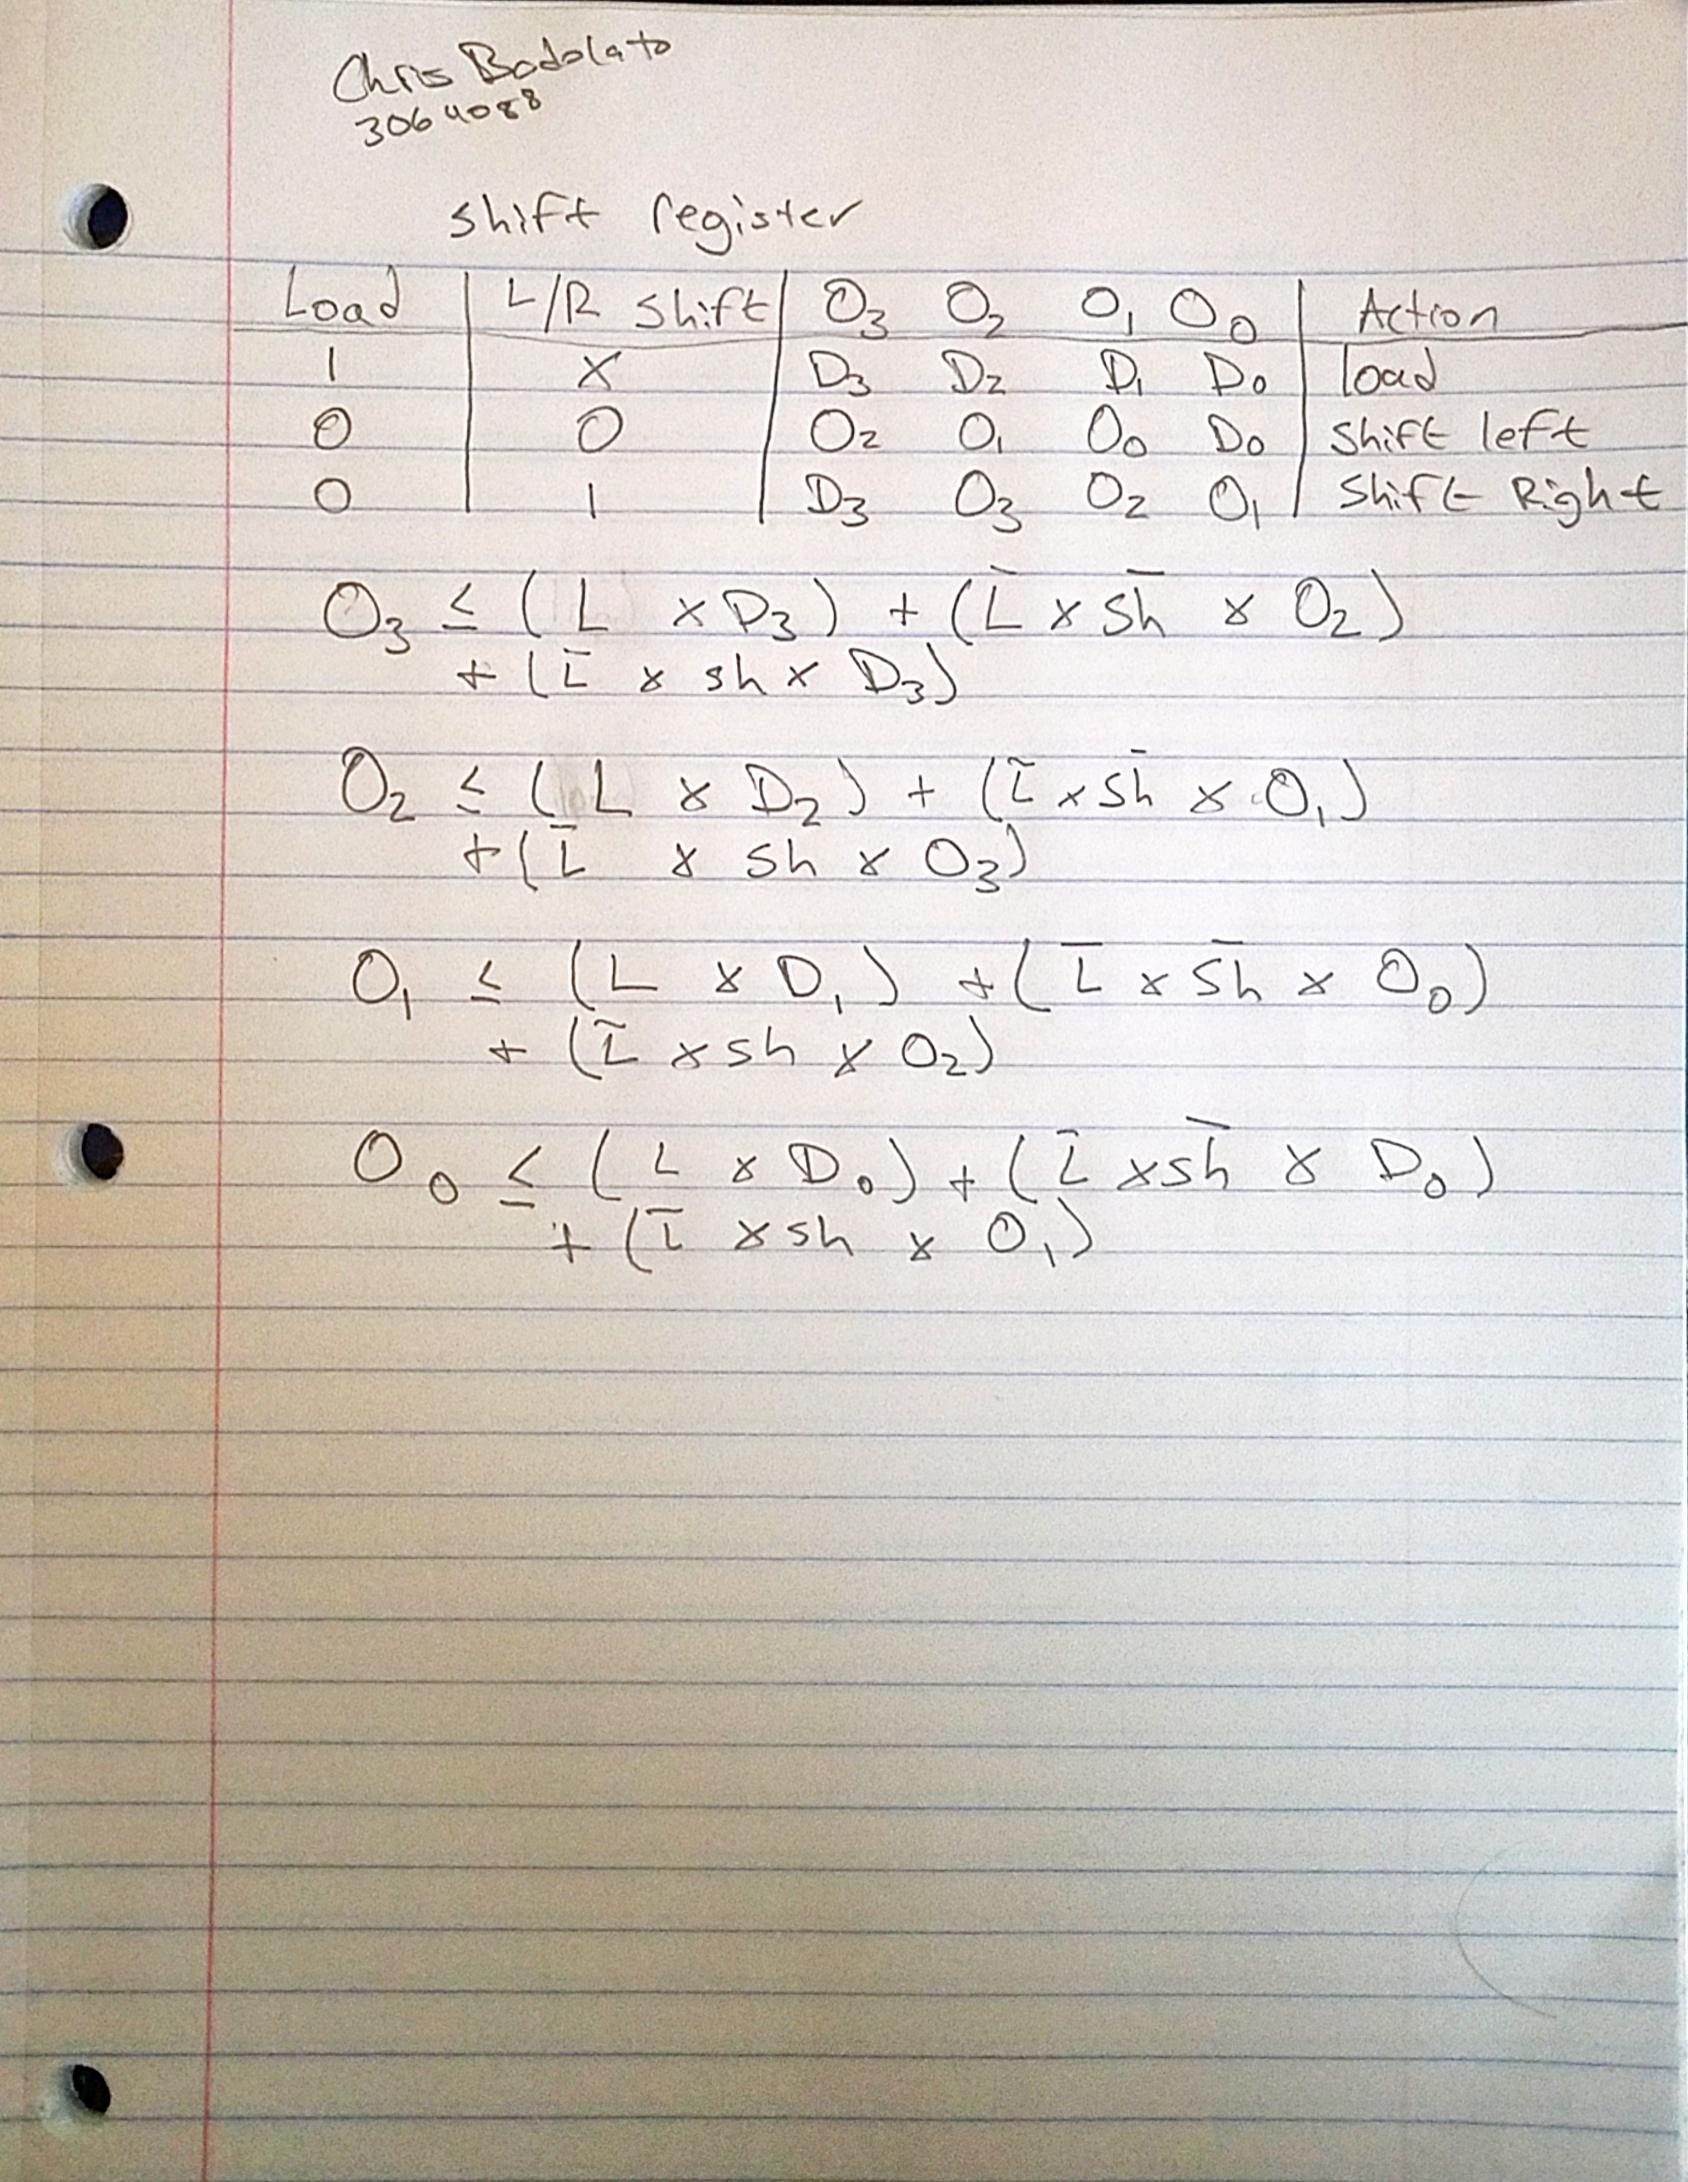 Chris Bodolato
3064088
shift register
Load | L/R Shift | O₃ O₂ O₁ O₀ | Action
1 | X | D₃ D₂ D₁ D₀ | load
0 | 0 | O₂ O₁ O₀ D₀ | Shift left
0 | 1 | D₃ O₃ O₂ O₁ | Shift Right
O₃ ≤ (L x D₃) + (L̅ x s̅h̅ x O₂)
+ (L̅ x sh x D₃)
O₂ ≤ (L x D₂) + (L̅ x s̅h̅ x O₁)
+ (L̅ x sh x O₃)
O₁ ≤ (L x D₁) + (L̅ x s̅h̅ x O₀)
+ (L̅ x sh x O₂)
O₀ ≤ (L x D₀) + (L̅ x s̅h̅ x D₀)
+ (L̅ x sh x O₁)